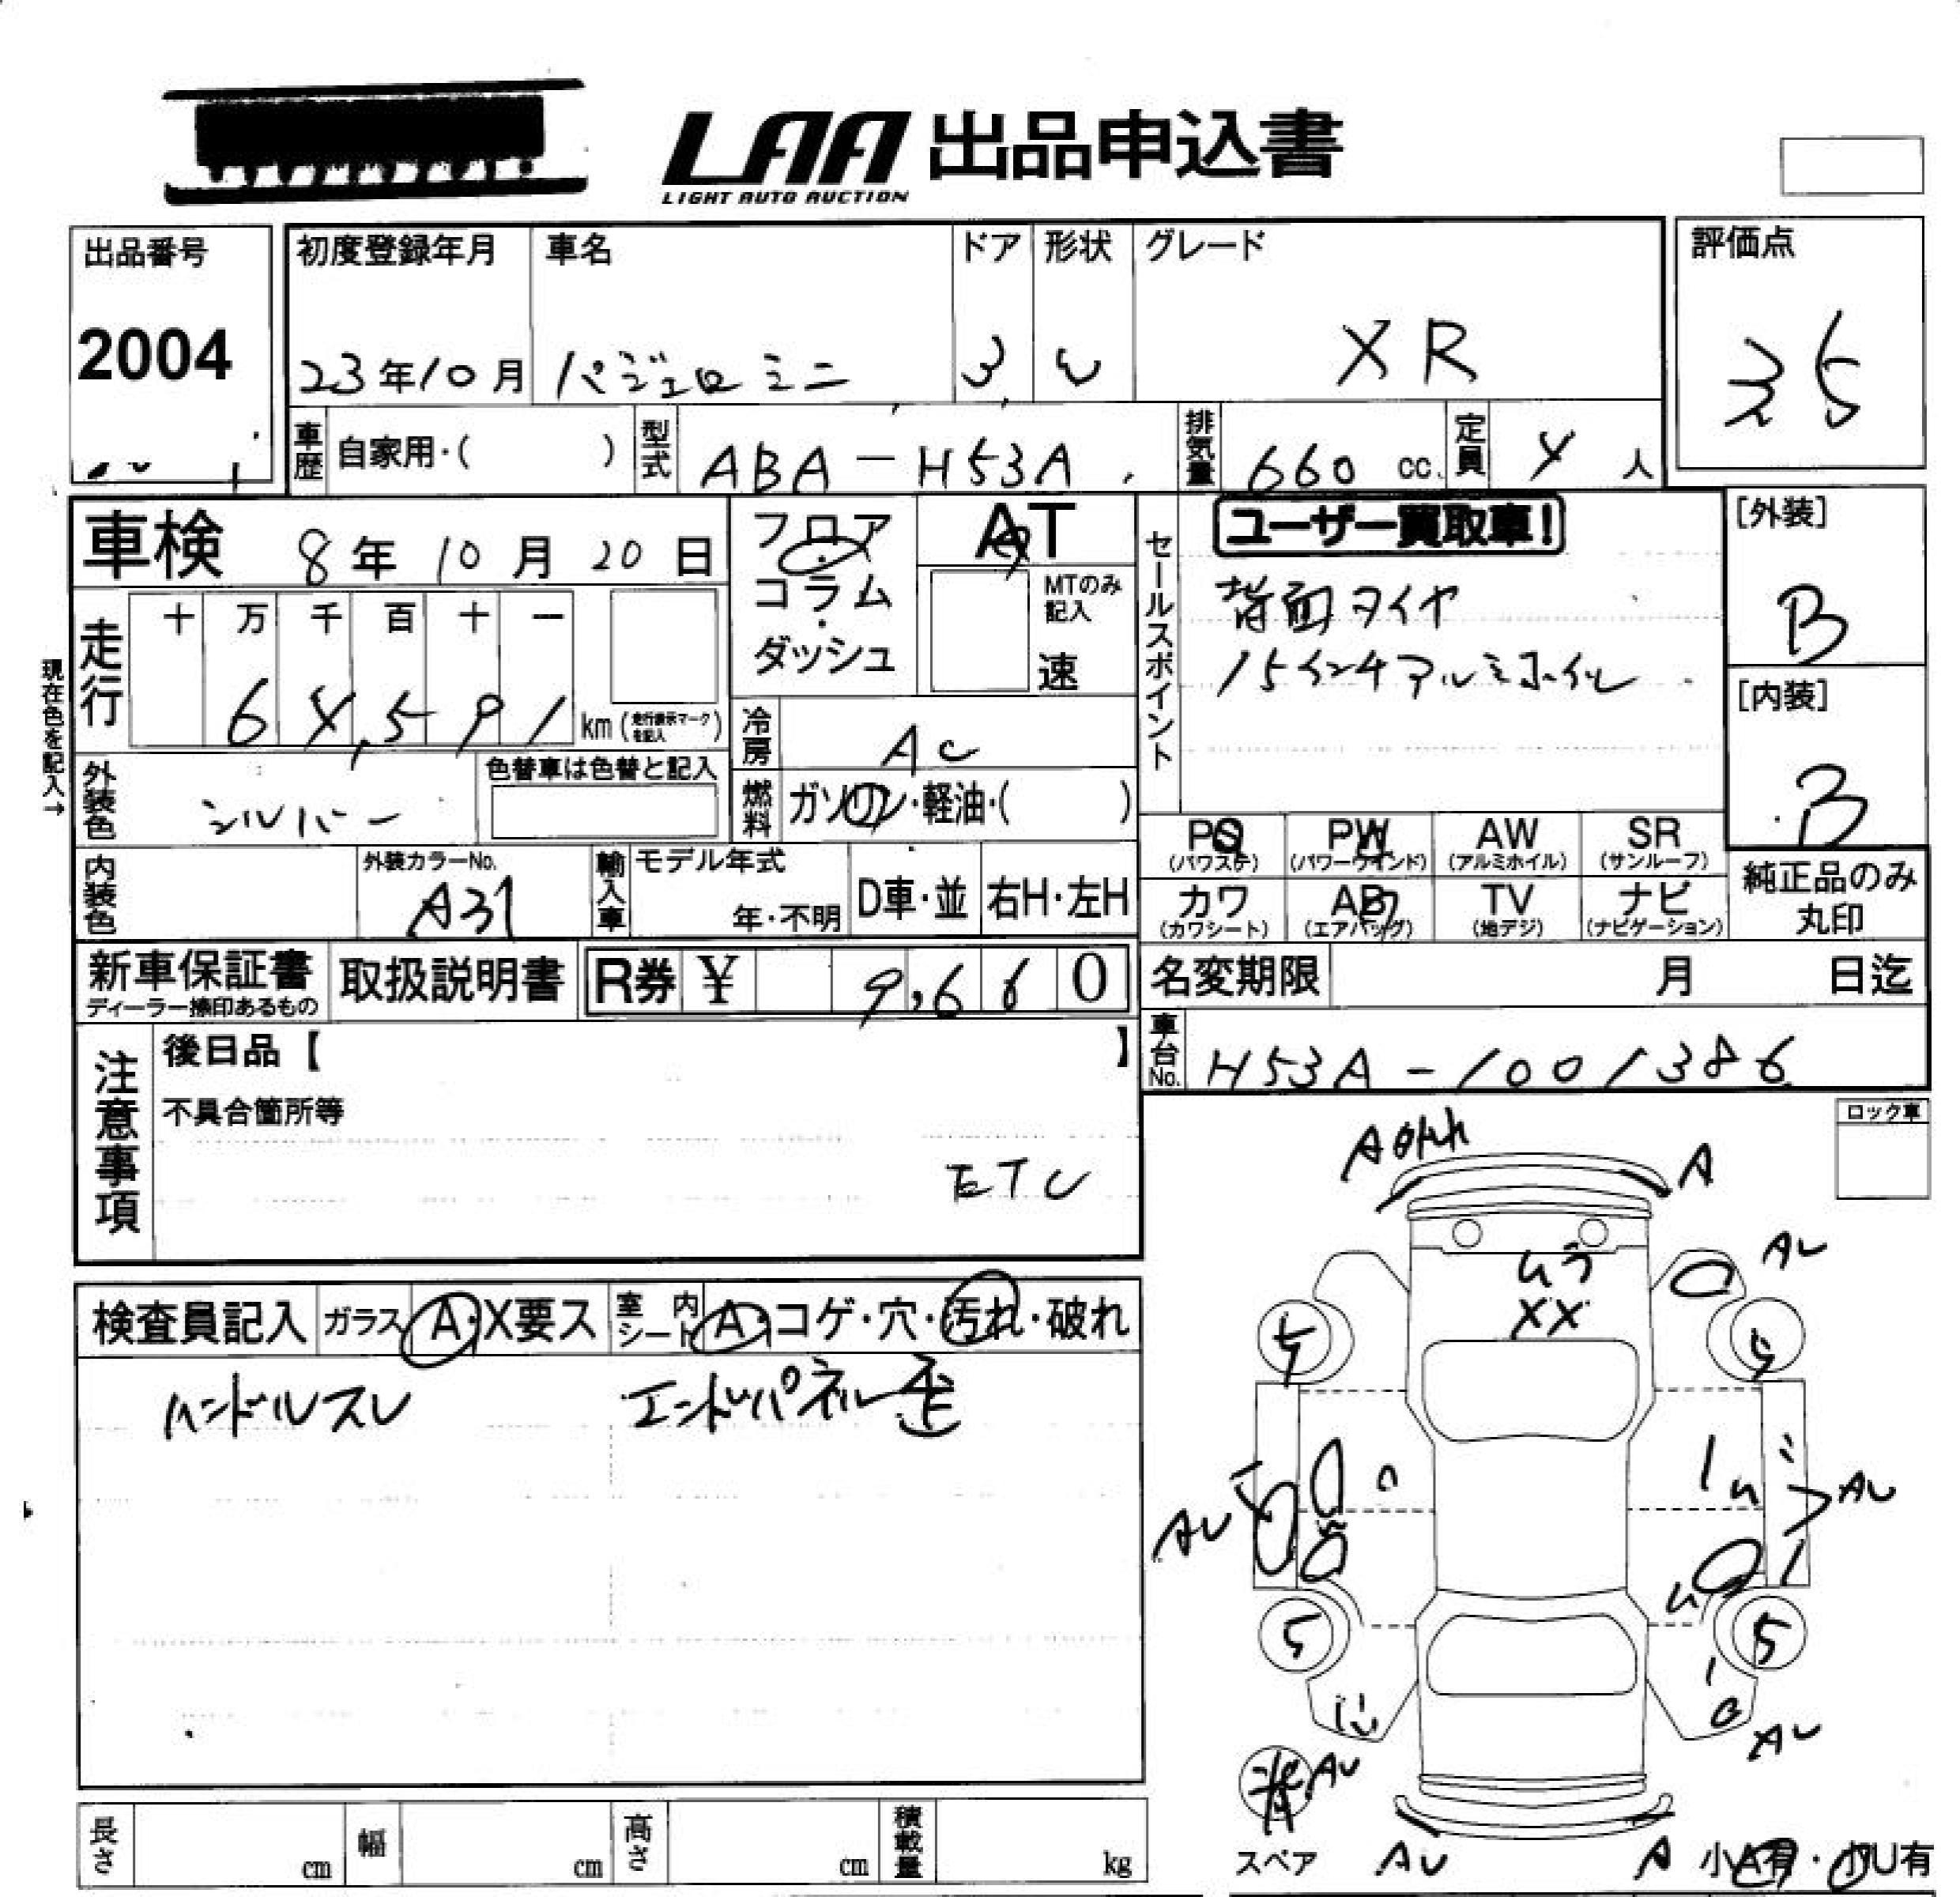 LAA 出品申込書
LIGHT AUTO AUCTION
出品番号
2004
初度登録年月
23年10月
車名
パジェロミニ
ドア
3
形状
W
グレード
XR
評価点
35
車歴
自家用・( )
型式
ABA-H53A
排気量
660 cc.
定員
4 人
車検 8年10月20日
走行
十 万 千 百 十 一
64,591 km (走行表示マークを記入)
現在色を記入→
フロア・コラム・ダッシュ
AT
MTのみ記入
速
冷房
AC
燃料
ガソリン・軽油・( )
セールスポイント
ユーザー買取車!
背面タイヤ
15インチアルミホイル
[外装]
B
[内装]
B
外装色
シルバー
色替車は色替と記入
内装色
外装カラーNo.
A31
輸入車
モデル年式
年・不明
D車・並
右H・左H
PS (パワステ)
PW (パワーウインド)
AW (アルミホイル)
SR (サンルーフ)
カワ (カワシート)
AB (エアバッグ)
TV (地デジ)
ナビ (ナビゲーション)
純正品のみ丸印
新車保証書
ディーラー捺印あるもの
取扱説明書
R券 ¥ 9,660
名変期限 月 日迄
車台No.
H53A-1001386
注意事項
後日品【 】
不具合箇所等
ETC
ロック車
検査員記入
ガラス A・X要ス
室内シート A・コゲ・穴・汚れ・破れ
ハンドルスレ
エンドパネル歪
A
A
AU
ムラ
XX
5
5
AU
AU
5
5
AU
背
AU
スペア
AU
A
小A有・小U有
長さ cm
幅 cm
高さ cm
積載量 kg